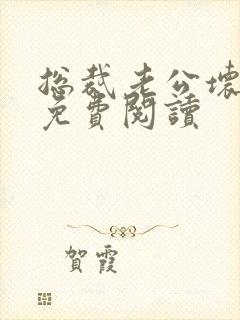 總裁老公壞
免費閱讀
賀霞